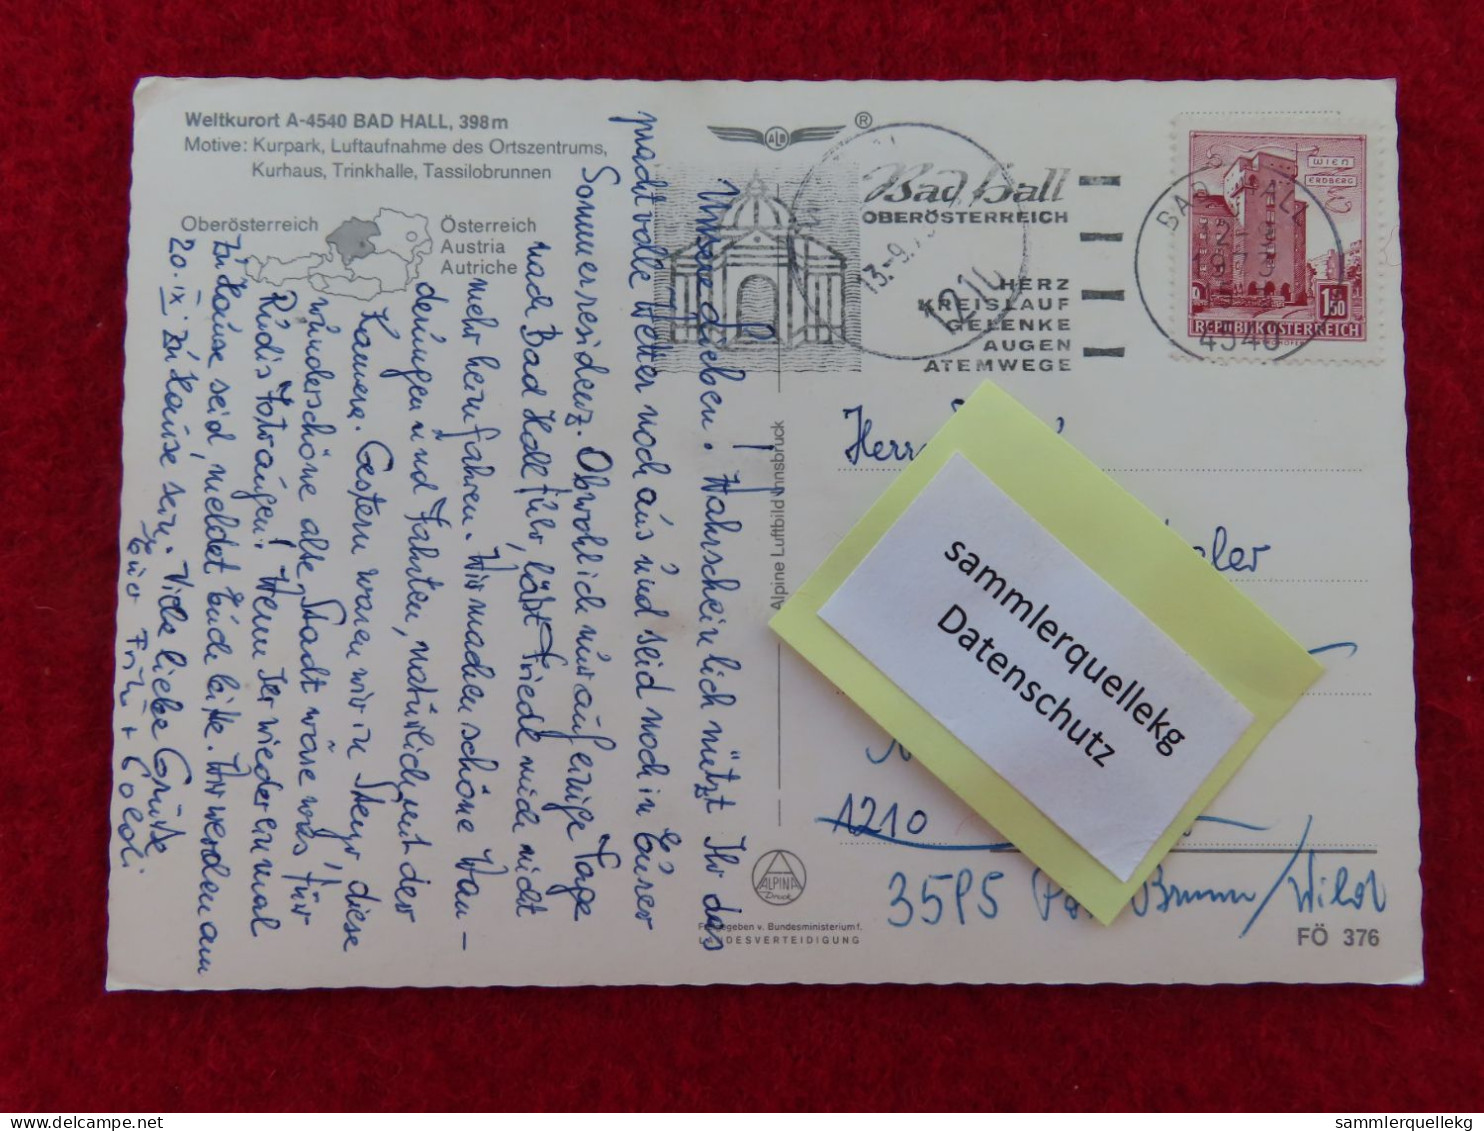 Weltkurort A-4540 BAD HALL, 398 m
Motive: Kurpark, Luftaufnahme des Ortszentrums,
Kurhaus, Trinkhalle, Tassilobrunnen
Oberösterreich
Österreich
Austria
Autriche
ALB
®
Bad Hall
OBERÖSTERREICH
HERZ
KREISLAUF
GELENKE
AUGEN
ATEMWEGE
13.-9.7
1210
BAD HALL
4540
WIEN
ERDBERG
1.50
REPUBLIK ÖSTERREICH
Unsere Lieben! Wahrscheinlich nützt Ihr das
prachtvolle Wetter noch aus und seid noch in Eurer
Sommerresidenz. Obwohl ich nur auf einige Tage
nach Bad Hall fuhr, läßt Friedl mich nicht
mehr heimfahren. Wir machen schöne Wan-
derungen und Fahrten, natürlich mit der
Kamera. Gestern waren wir in Steyr, diese
wunderschöne alte Stadt wäre was für
Rudis Fotoaugen! Wenn Ihr wieder einmal
zu Hause seid, meldet Euch bitte. Wir werden am
20. IX zu Hause sein. Viele liebe Grüße
Euer Fritz + Poldi
Alpine Luftbild Innsbruck
ALPINA
Druck
Freigegeben v. Bundesministerium f.
LANDESVERTEIDIGUNG
Herrn
1210
3595 Brunn/Wild
FÖ 376
sammlerquellekg
Datenschutz
sammlerquellekg